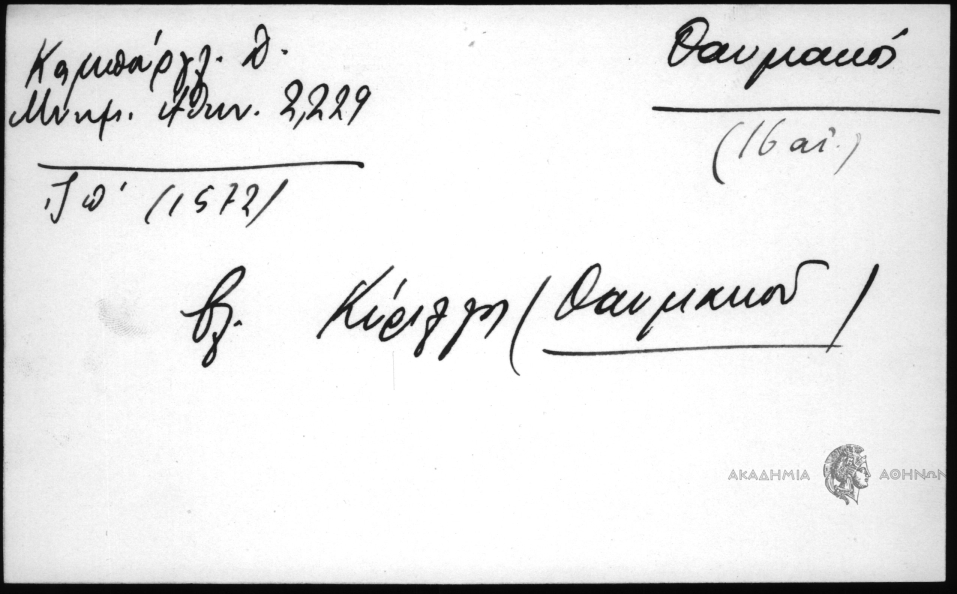 Καμπούργλ. Δ.
Μνημ. Αθην. 2,229
(1572)
Θαυμακός
(16 αἰ.)
βλ. Κύριλλος (Θαυμακοῦ)
ΑΚΑΔΗΜΙΑ ΑΘΗΝΩΝ